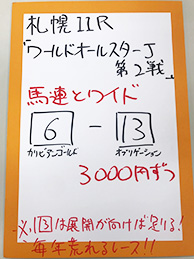 札幌11R
「ワールドオールスターJ
第2戦」
馬連とワイド
6 - 13
カリビアンゴールド オブリゲーション
3000円ずつ
※13は展開が向けば足りる!
毎年荒れるレース!!